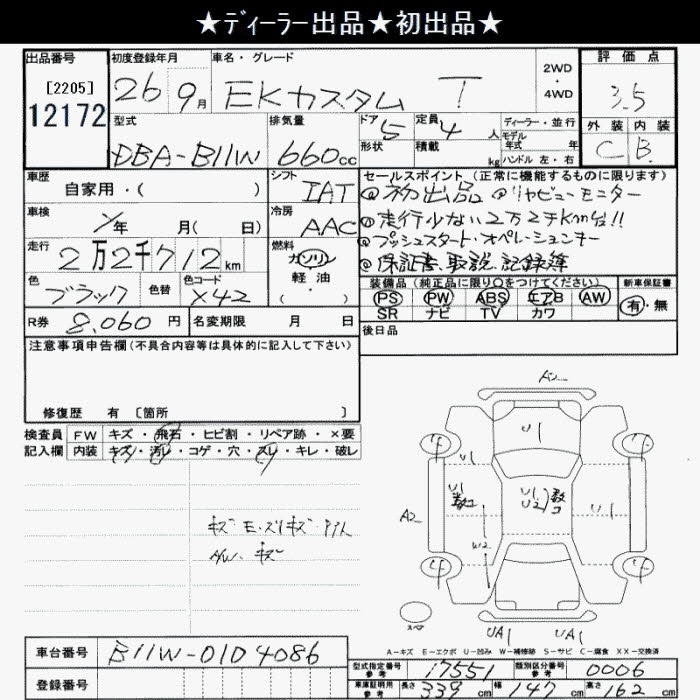 ★ディーラー出品★初出品★
出品番号 初度登録年月 車名・グレード 2WD・4WD 評価点
[2205] 12172 26 9月 EKカスタム T 3.5
型式 排気量 ドア 定員 ディーラー・並行 外装 内装
DBA-B11W 660cc 5 4人 モデル年式 年 C B
形状 積載 kg ハンドル 左・右
車歴 シフト セールスポイント (正常に機能するものに限ります)
自家用・( ) IAT @初出品 @リヤビューモニター
車検 冷房 @走行少ない2万2千km台!!
年 月( 日) AAC @プッシュスタート・オペレーションキー
走行 燃料 @保証書、取説、記録簿
2万2千712km ガソリン
軽油
色 色替 色コード 装備品 (純正品に限り○をつけてください) 新車保証書
ブラック X42 PS PW ABS エアB AW 有・無
SR ナビ TV カワ
R券 8,060円 名変期限 月 日 後日品
注意事項申告欄(不具合内容等は具体的に記入して下さい)
修復歴 有 [箇所 ]
検査員 FW キズ・飛石・ヒビ割・リペア跡・×要
記入欄 内装 キズ・汚レ・コゲ・穴・スレ・キレ・破レ
A2
U1
U1
U1 U1 U2 U1
A2
W2
スペア
UA1 UA1
A-キズ E-エクボ U-凹み W-補修跡 S-サビ C-腐食 XX-交換済
車台番号 B11W-0104086
登録番号
型式指定番号 参考 17551 類別区分番号 参考 0006
車庫証明用 参考 長さ 339cm 幅 147cm 高さ 162cm